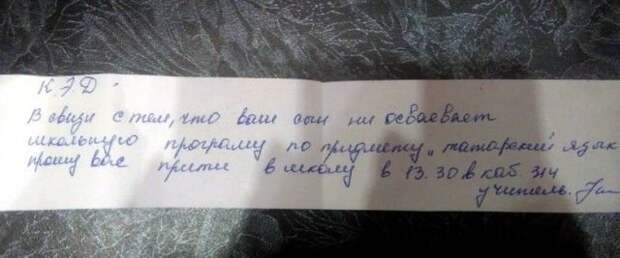 К Э Д.
В связи с тем, что ваш сын ни осваевает
школьную програму по придмету „татарский язык
прошу вас прити в школу в 13.30 в каб. 314
учитель.